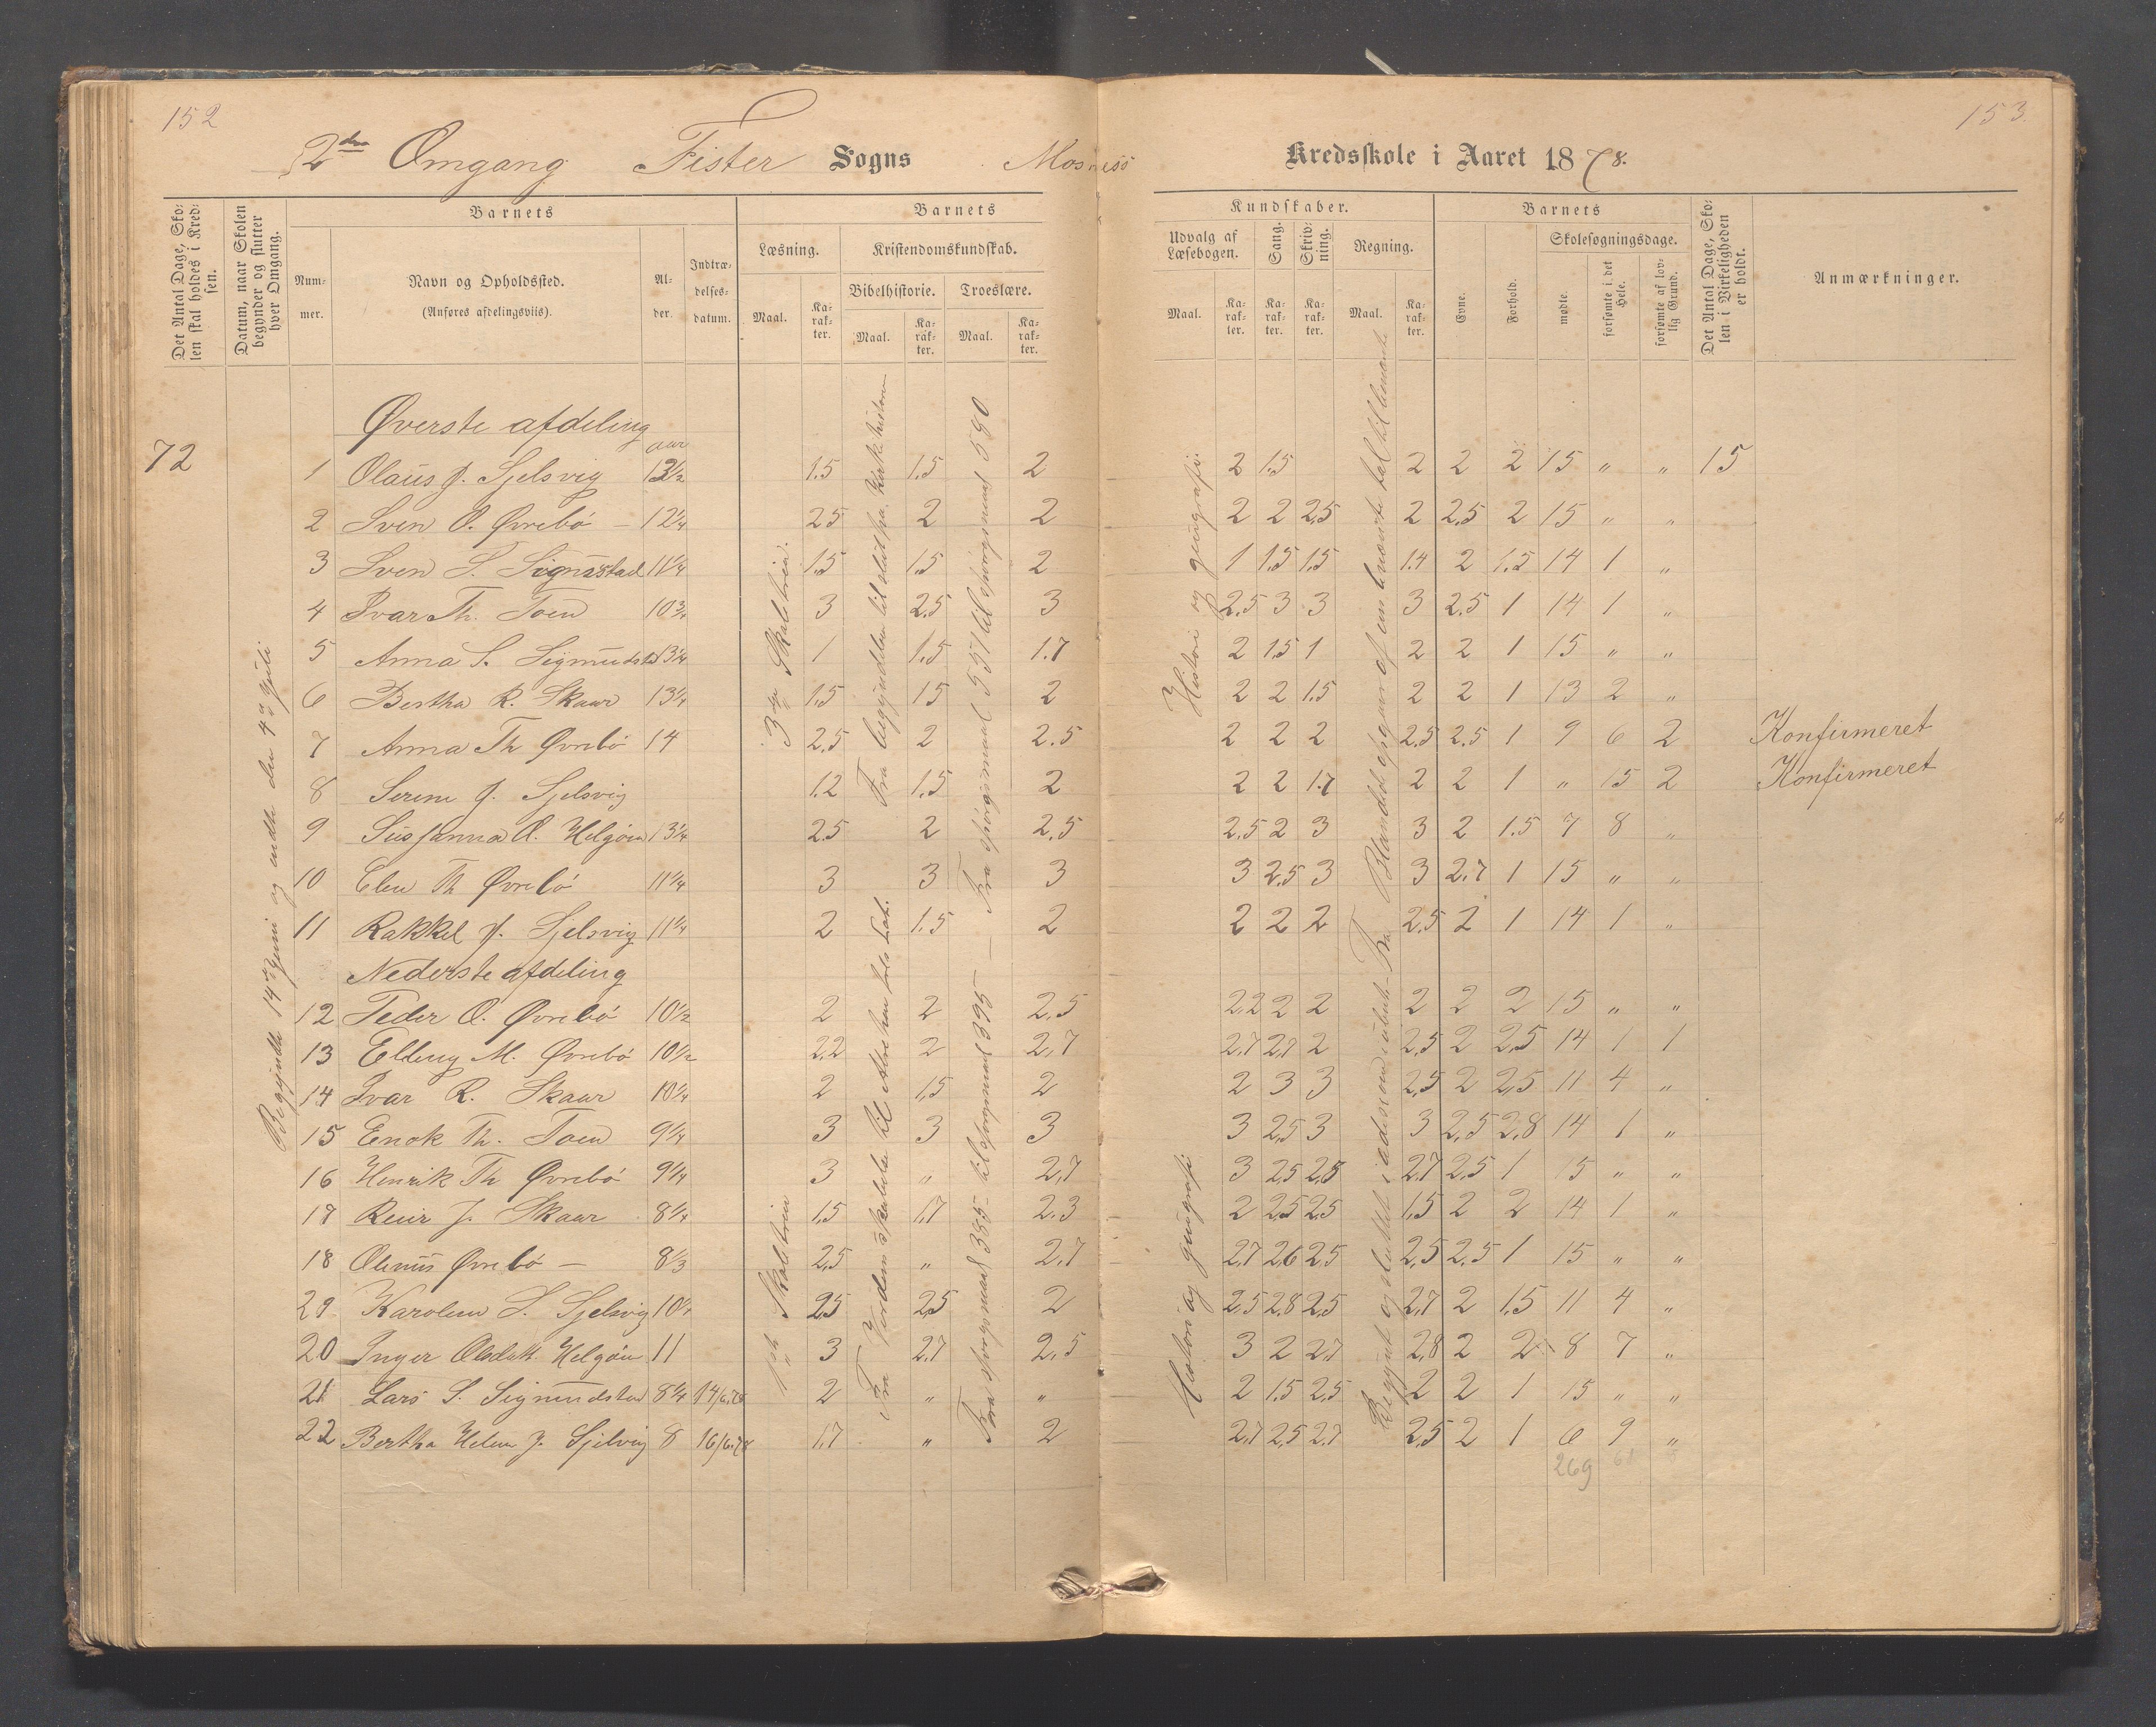 152
153.
2den Omgang Fister Sogns Mosness Kredsskole i Aaret 1878.
Det Antal Dage, Skolen skal holdes i Kredsen.
Datum, naar Skolen begynder og slutter hver Omgang.
Barnets
Nummer.
Navn og Opholdssted.
(Anføres afdelingsviis).
Alder.
Indtrædelsesdatum.
Barnets
Læsning.
Maal.
Karakter.
Kristendomskundskab.
Bibelhistorie.
Maal.
Karakter.
Troeslære.
Maal.
Karakter.
Kundskaber.
Udvalg af Læsebogen.
Maal.
Karakter.
Sang.
Karakter.
Skrivning.
Karakter.
Regning.
Maal.
Karakter.
Barnets
Evne.
Forhold.
Skolesøgningsdage.
mødte.
forsømte i det Hele.
forsømte af lovlig Grund.
Det Antal Dage, Skolen i Virkeligheden er holdt.
Anmærkninger.
Øverste afdeling
aar
72
1 Olaus J. Sjelsvig 13½ 1.5 1.5 2 2 1.5 2 2 2 15 " " 15
2 Sven O. Øvrebö – 12¼ 2.5 2 2 2 2 2.5 2 2.5 2 15 " "
3 Sven S. Sigmstad 11¼ 1.5 1.5 2 1 1.5 1.5 1.4 2 1.5 14 1 "
4 Ivar Th. Toen 10¾ 3 2.5 3 2.5 3 3 3 2.5 1 14 1 "
5 Anna S. Sigmundst 13¼ 1 1.5 1.7 2 1.5 1 2 2 1 15 " "
6 Bertha R. Skaar 13¼ 1.5 15 2 2 2 1.5 2 2 1 13 2 "
7 Anna Th Øvrebö 14 2.5 2 2.5 2 2 2 2.5 2.5 1 9 6 2 Konfirmeret
8 Serine J. Sjelsvig 1.2 1.5 2 2 2 1.7 2 2 1 " 15 2 Konfirmeret
9 Susanna O. Helgöen 13¼ 2.5 2 2.5 2.5 2 3 3 2 1.5 7 8 "
10 Elen Th Øvrebö 11¼ 3 3 3 3 2.5 3 3 2.7 1 15 " "
11 Rakkel J. Sjelsvig 11¼ 2 1.5 2 2 2 2 2.5 2 1 14 1 "
Nederste afdeling
12 Peder O. Øvrebö 10½ 2 2 2.5 2.2 2 2 2 2 2 15 " "
13 Elling M. Øvrebö 10½ 2.2 2 2.7 2.7 2.7 2 2.5 2 2.5 14 1 1
14 Ivar R. Skaar 10¼ 2 1.5 2 2 3 3 2.5 2 2.5 11 4 "
15 Enok Th. Toen 9¼ 3 3 3 3 2.5 3 3 2.5 2.8 14 1 "
16 Henrik Th Øvrebö 9¼ 3 " 2.7 3 2.5 2.8 2.7 2.5 1 15 " "
17 Reier J. Skaar 8¼ 1.5 1.7 2.3 2 2.5 2.5 1.5 2 2 14 1 "
18 Olenus Øvrebö – 8⅓ 2.5 " 2.7 2.7 2.6 2.5 2.5 2.5 1 15 " "
29 Karolien S. Sjelsvig 10¼ 2.5 2.5 2 2.5 2.8 2.5 2.7 2 1.5 11 4 "
20 Inger Olsdatt. Helgöen 11 3 2.7 2.5 3 2 2.7 2.8 2 2 8 7 "
21 Lars S. Sigmundstad 8¼ 14/6.78 2 " " 2 1.5 2.5 2 2 1 15 " "
22 Bertha Helene J. Sjelsvig 8 16/6.78 1.7 " 2 2.7 2.5 2.7 2.5 2 1 6 9 "
269 61
Begyndte 14de Juni og endte den 4de Juli
3die Skoletrin.
1ste Skoletrin
Fra begyndelsen til slut fra Kirkehistorien
Fra Verdens skabelse til Abraham
Fra spörgsmaal 551 til spörgsmaal 590
Fra spörgsmaal 385 til spörgsmaal 395
Historie og geografi.
Historie og geografi
Fra Blandede opgaver af
Begynt og sluttet i addisson